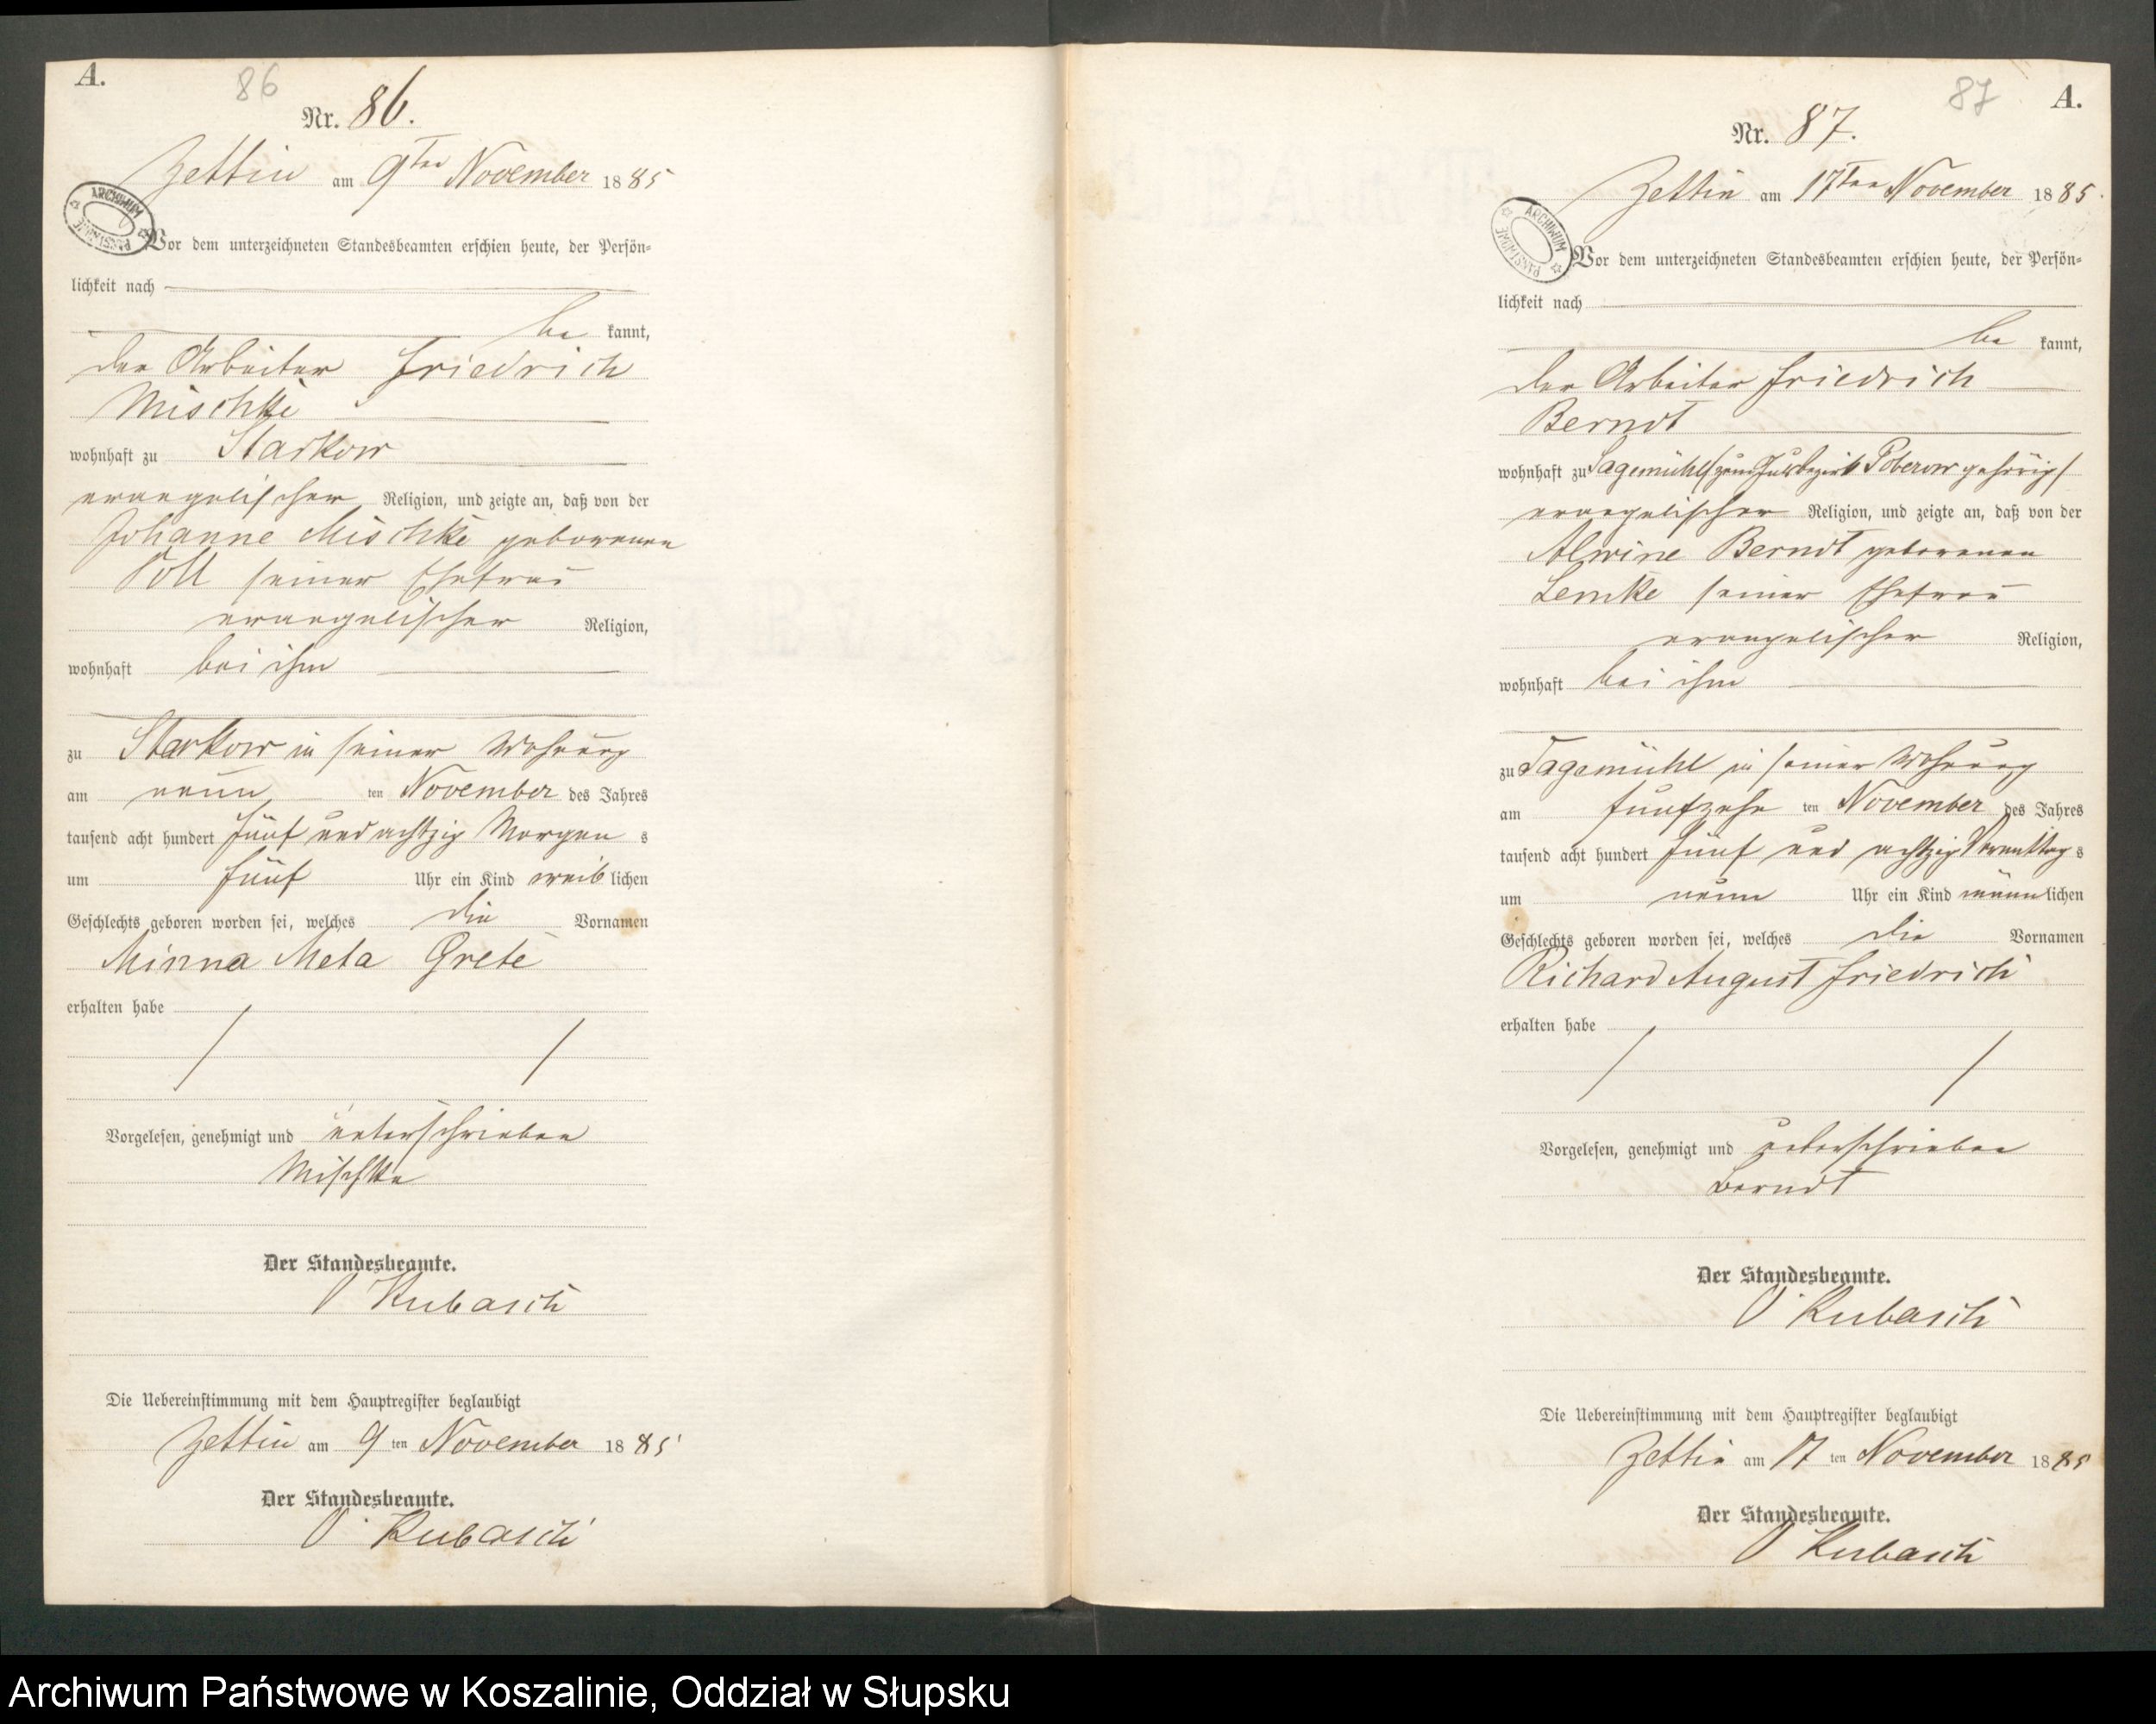 A.
86
Nr. 86.
Zettin am 9ten November 1885
ARCHIWUM PAŃSTWOWE
Vor dem unterzeichneten Standesbeamten erschien heute, der Persön-
lichkeit nach
be kannt,
der Arbeiter Friedrich
Mischke
wohnhaft zu Starkow
evangelischer Religion, und zeigte an, daß von der
Johanne Mischke geborenen
Poll seiner Ehefrau
evangelischer Religion,
wohnhaft bei ihm
zu Starkow in seiner Wohnung
am neun ten November des Jahres
tausend acht hundert fünf und achtzig Morgen s
um fünf Uhr ein Kind weib lichen
Geschlechts geboren worden sei, welches die Vornamen
Minna Meta Grete
erhalten habe
Vorgelesen, genehmigt und unterschrieben
Mischke
Der Standesbeamte.
Kubasch
Die Uebereinstimmung mit dem Hauptregister beglaubigt
Zettin am 9 ten November 1885
Der Standesbeamte.
Kubasch
87
A.
Nr. 87.
Zettin am 17ten November 1885.
ARCHIWUM PAŃSTWOWE
Vor dem unterzeichneten Standesbeamten erschien heute, der Persön-
lichkeit nach
be kannt,
der Arbeiter Friedrich
Berndt
wohnhaft zu Sagemühl /zum Gutsbezirk Poberow gehörig/
evangelischer Religion, und zeigte an, daß von der
Alwine Berndt geborenen
Lemke seiner Ehefrau
evangelischer Religion,
wohnhaft bei ihm
zu Sagemühl in seiner Wohnung
am fünfzehn ten November des Jahres
tausend acht hundert fünf und achtzig Vormittag s
um neun Uhr ein Kind männ lichen
Geschlechts geboren worden sei, welches die Vornamen
Richard August Friedrich
erhalten habe
Vorgelesen, genehmigt und unterschrieben
Berndt
Der Standesbeamte.
Kubasch
Die Uebereinstimmung mit dem Hauptregister beglaubigt
Zettin am 17 ten November 1885
Der Standesbeamte.
Kubasch
Archiwum Państwowe w Koszalinie, Oddział w Słupsku